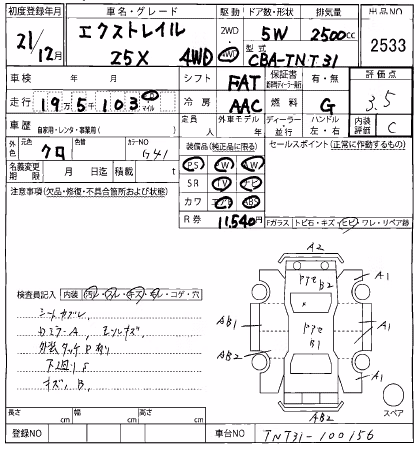 初度登録年月 車名・グレード 駆動 ドア数・形状 排気量 出品NO
21/12月 エクストレイル 2WD 5W 2500cc 2533
25X 4WD 4WD 型式 CBA-TNT31
車検 年 月 シフト FAT 保証書 有・無 評価点
走行 19万5千103 km マイル 冷房 AAC 燃料 G 3.5
車歴 自家用・レンタ・事業用( ) 定員 人 外車モデル 年 ディーラー 並行 ハンドル 左・右 内装評価 C
外色 元色 クロ 色替 カラーNO G41 装備品(純正品に限る) セールスポイント(正常に作動するもの)
名義変更期限 月 日迄 積載 t PS PW AW
注意事項(欠品・修復・不具合箇所および状態) SR TV ナビ
カワ エアB ABS
R券 11,540円 Fガラス トビ石・キズ・ヒビ・ワレ・リペア跡
A2
検査員記入 内装 汚レ・スレ・キズ・モレ・コゲ・穴
シートカブレ
ドアミラーA
外装タッチP有り
下廻りS
キズ、B
ドアで B2
ドアで B1
A1
AB1
A1
AB2
A1
AB2
スペア
長さ cm 幅 cm 高さ cm
登録NO 車台NO TNT31-100156